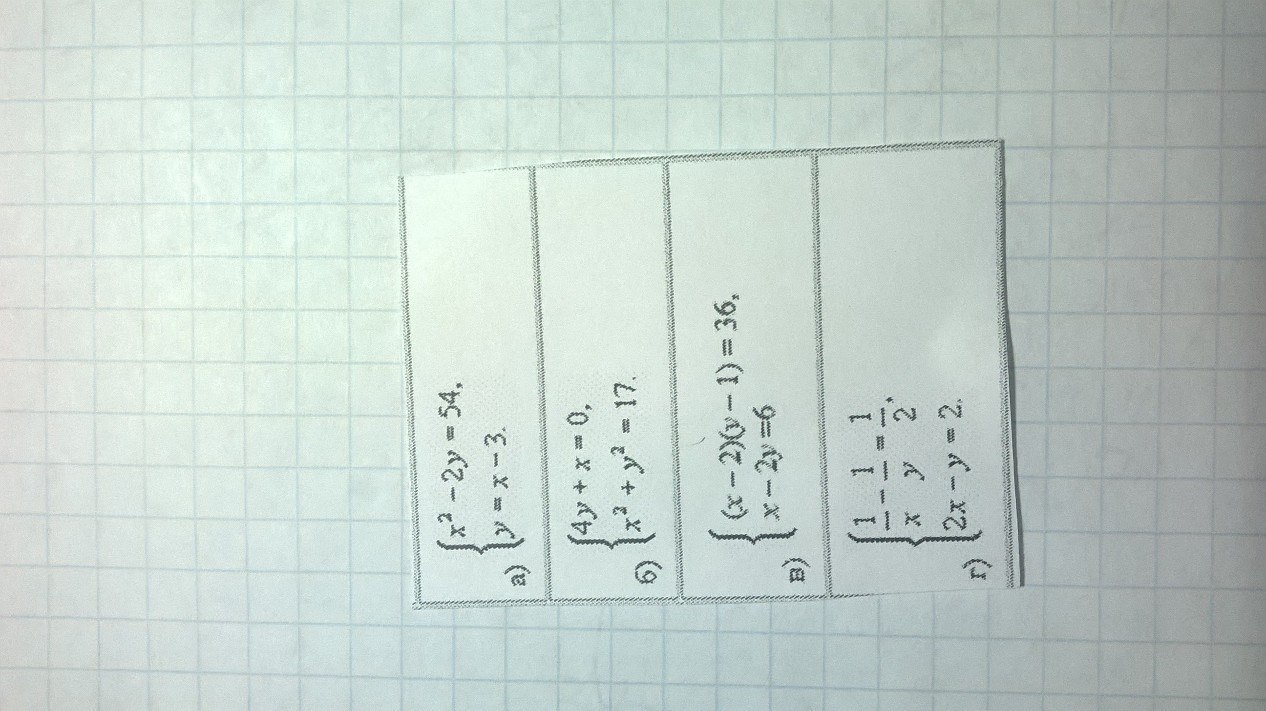 а) { x² − 2y = 54,
y = x − 3.
б) { 4y + x = 0,
x² + y² = 17.
в) { (x − 2)(y − 1) = 36,
x − 2y = 6
г) { 1/x − 1/y = 1/2,
2x − y = 2.